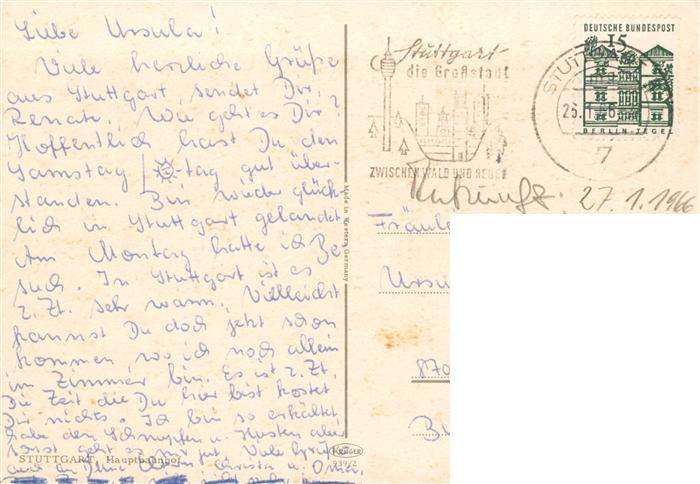 Liebe Ursula!
Viele herzliche Grüße
aus Stuttgart, sendet Dir,
Renate. Wie geht es Dir?
Hoffentlich hast Du den
Samstag / -tag gut über-
standen. Bin wieder glück-
lich in Stuttgart gelandet
Am Montag hatte ich Be
such. In Stuttgart ist es
z. Zt. sehr warm. Vielleicht
kannst Du doch jetzt schon
kommen, wo ich noch allein
im Zimmer bin. Es ist z. Zt.
Die Zeit die Du hier bist kostet
Dir nichts. Ich bin so erkältet
habe den Schnupfen u. Husten aber
sonst geht es mir gut. Viele Grüße
auch an Deine Eltern, Christa u.
STUTTGART, Hauptbahnhof
Made in Western Germany
KRÜGER
Stuttgart
die Großstadt
ZWISCHEN WALD UND REBEN
STUTT
7
DEUTSCHE BUNDESPOST
15
BERLIN-TEGEL
27.1.1966
Fräule
Ursu
870